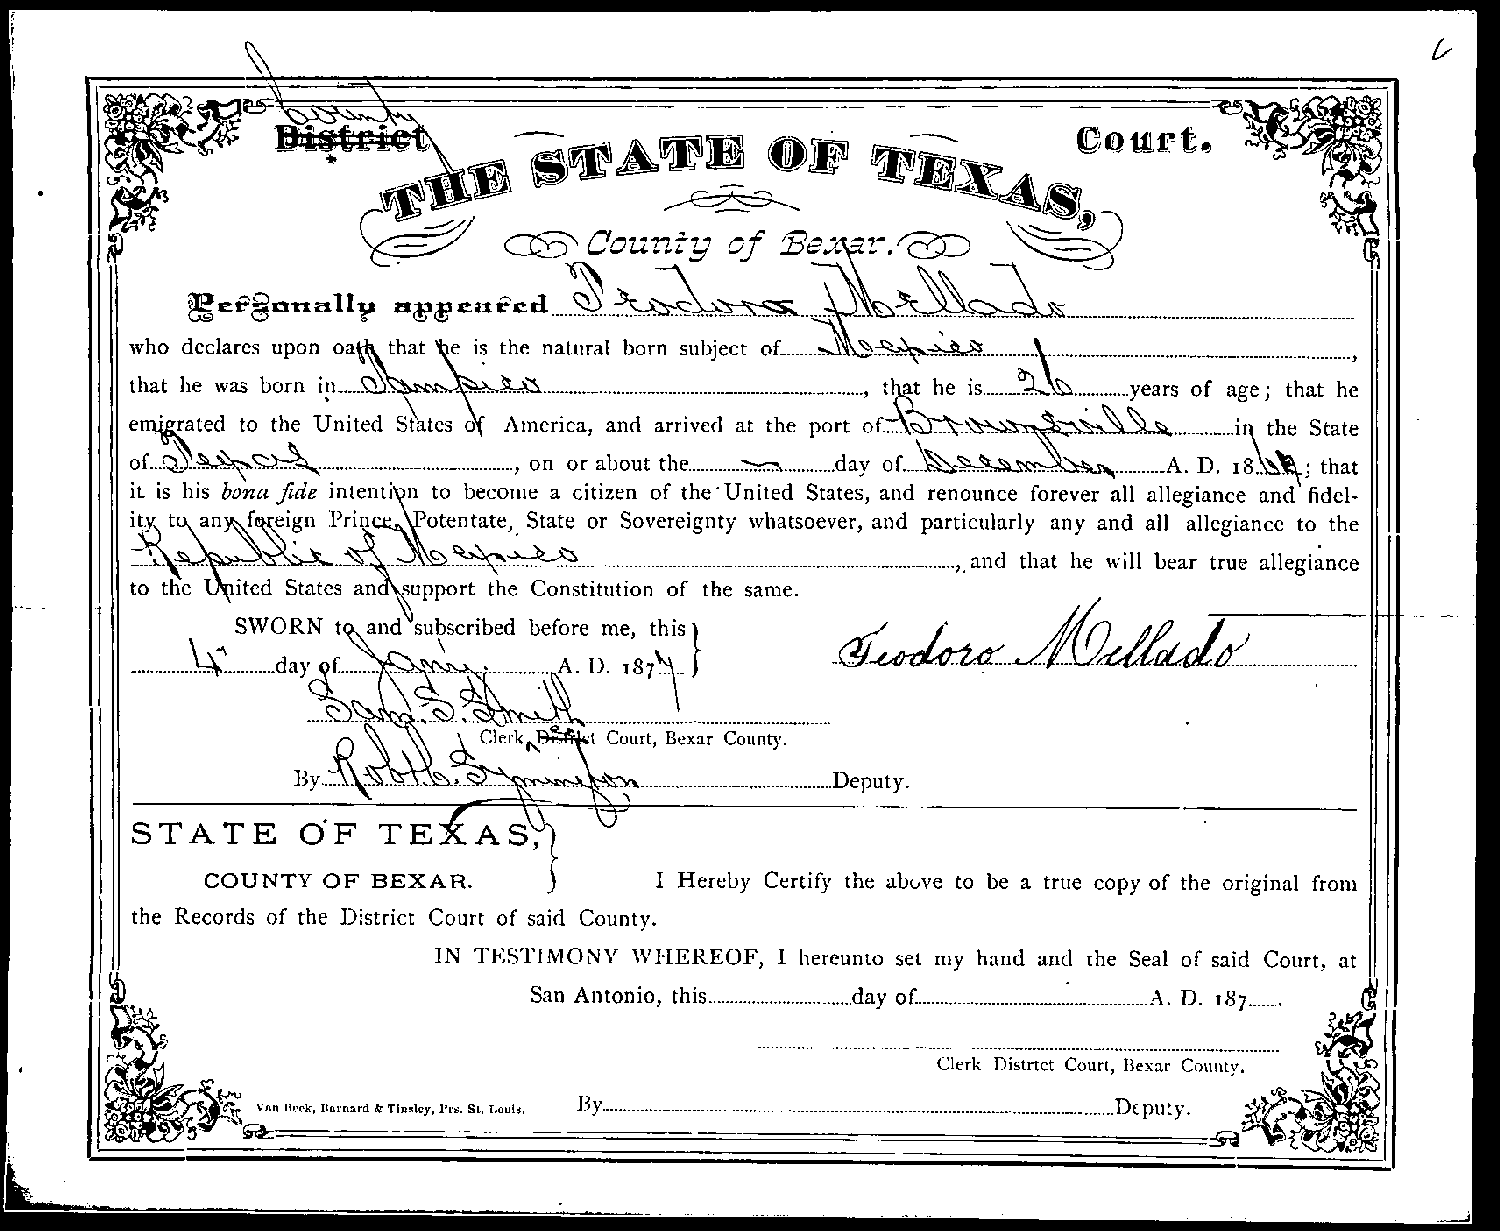 County
District Court.
THE STATE OF TEXAS,
County of Bexar.
Personally appeared Teodoro Mellado
who declares upon oath that he is the natural born subject of Mexico,
that he was born in Tampico, that he is 26 years of age; that he
emigrated to the United States of America, and arrived at the port of Brownsville in the State
of Texas, on or about the — day of December A. D. 18; that
it is his bona fide intention to become a citizen of the United States, and renounce forever all allegiance and fidel-
ity to any foreign Prince, Potentate, State or Sovereignty whatsoever, and particularly any and all allegiance to the
Republic of Mexico, and that he will bear true allegiance
to the United States and support the Constitution of the same.
SWORN to and subscribed before me, this
4" day of Jany. A. D. 187
Teodoro Mellado
Sam. S. Smith
Clerk District Court, Bexar County.
By Robt C. Symington Deputy.
STATE OF TEXAS,
COUNTY OF BEXAR.
I Hereby Certify the above to be a true copy of the original from
the Records of the District Court of said County.
IN TESTIMONY WHEREOF, I hereunto set my hand and the Seal of said Court, at
San Antonio, this day of A. D. 187 .
Clerk District Court, Bexar County.
Van Beek, Barnard & Tinsley, Prs. St. Louis.
By Deputy.